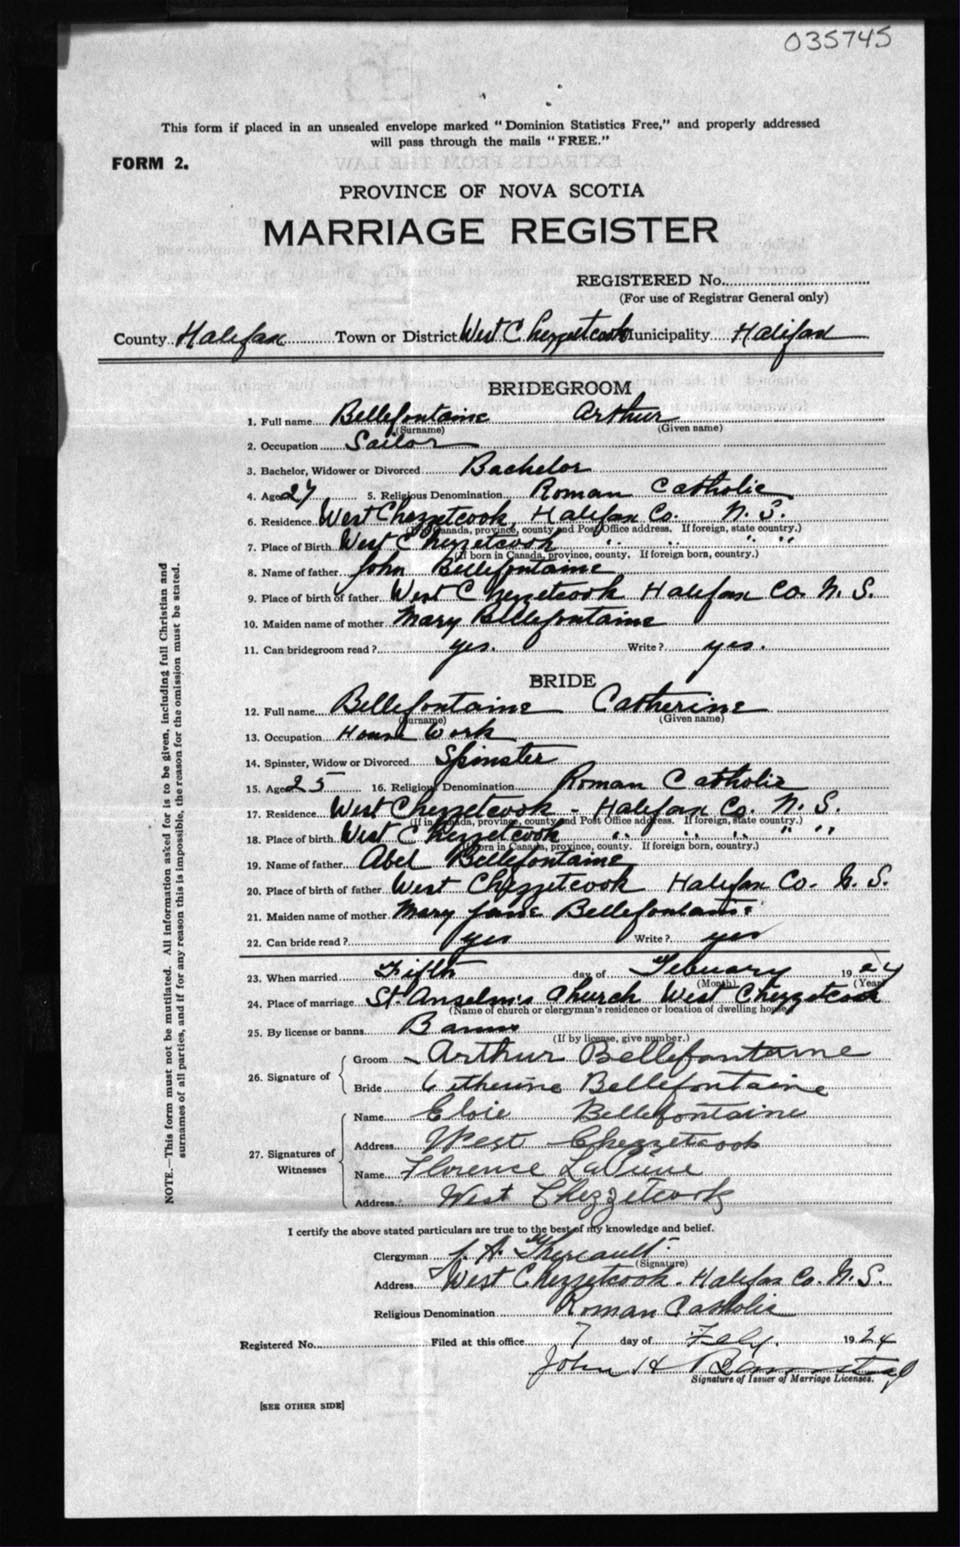 035745
This form if placed in an unsealed envelope marked "Dominion Statistics Free," and properly addressed
will pass through the mails "FREE."
FORM 2.
PROVINCE OF NOVA SCOTIA
MARRIAGE REGISTER
REGISTERED No.
(For use of Registrar General only)
County Halifax Town or District West Chezzetcook Municipality Halifax
BRIDEGROOM
1. Full name Bellefontaine Arthur
(Surname) (Given name)
2. Occupation Sailor
3. Bachelor, Widower or Divorced Bachelor
4. Age 27 5. Religious Denomination Roman Catholic
6. Residence West Chezzetcook, Halifax Co. N. S.
(If in Canada, province, county and Post Office address. If foreign, state country.)
7. Place of Birth West Chezzetcook " " " "
(If born in Canada, province, county. If foreign born, country.)
8. Name of father John Bellefontaine
9. Place of birth of father West Chezzetcook Halifax Co. N. S.
10. Maiden name of mother Mary Bellefontaine
11. Can bridegroom read? yes. Write? yes.
BRIDE
12. Full name Bellefontaine Catherine
(Surname) (Given name)
13. Occupation House Work
14. Spinster, Widow or Divorced Spinster
15. Age 25 16. Religious Denomination Roman Catholic
17. Residence West Chezzetcook - Halifax Co. N. S.
(If in Canada, province, county and Post Office address. If foreign, state country.)
18. Place of birth West Chezzetcook " " " " "
(If born in Canada, province, county. If foreign born, country.)
19. Name of father Abel Bellefontaine
20. Place of birth of father West Chezzetcook Halifax Co. N. S.
21. Maiden name of mother Mary Jane Bellefontaine
22. Can bride read? yes Write? yes
23. When married Fifth day of February 1924
(Month) (Year)
24. Place of marriage St. Anselm's Church West Chezzetcook
(Name of church or clergyman's residence or location of dwelling house)
25. By license or banns Banns
(If by license, give number.)
26. Signature of
Groom Arthur Bellefontaine
Bride Catherine Bellefontaine
27. Signatures of Witnesses
Name Elsie Bellefontaine
Address West Chezzetcook
Name Florence
Address West Chezzetcook
I certify the above stated particulars are true to the best of my knowledge and belief.
Clergyman J. A. Theriault
(Signature)
Address West Chezzetcook - Halifax Co. N. S.
Religious Denomination Roman Catholic
Registered No. Filed at this office 7 day of Feby. 1924
John H
Signature of Issuer of Marriage Licenses.
[SEE OTHER SIDE]
NOTE.—This form must not be mutilated. All information asked for is to be given, including full Christian and
surnames of all parties, and if for any reason this is impossible, the reason for the omission must be stated.